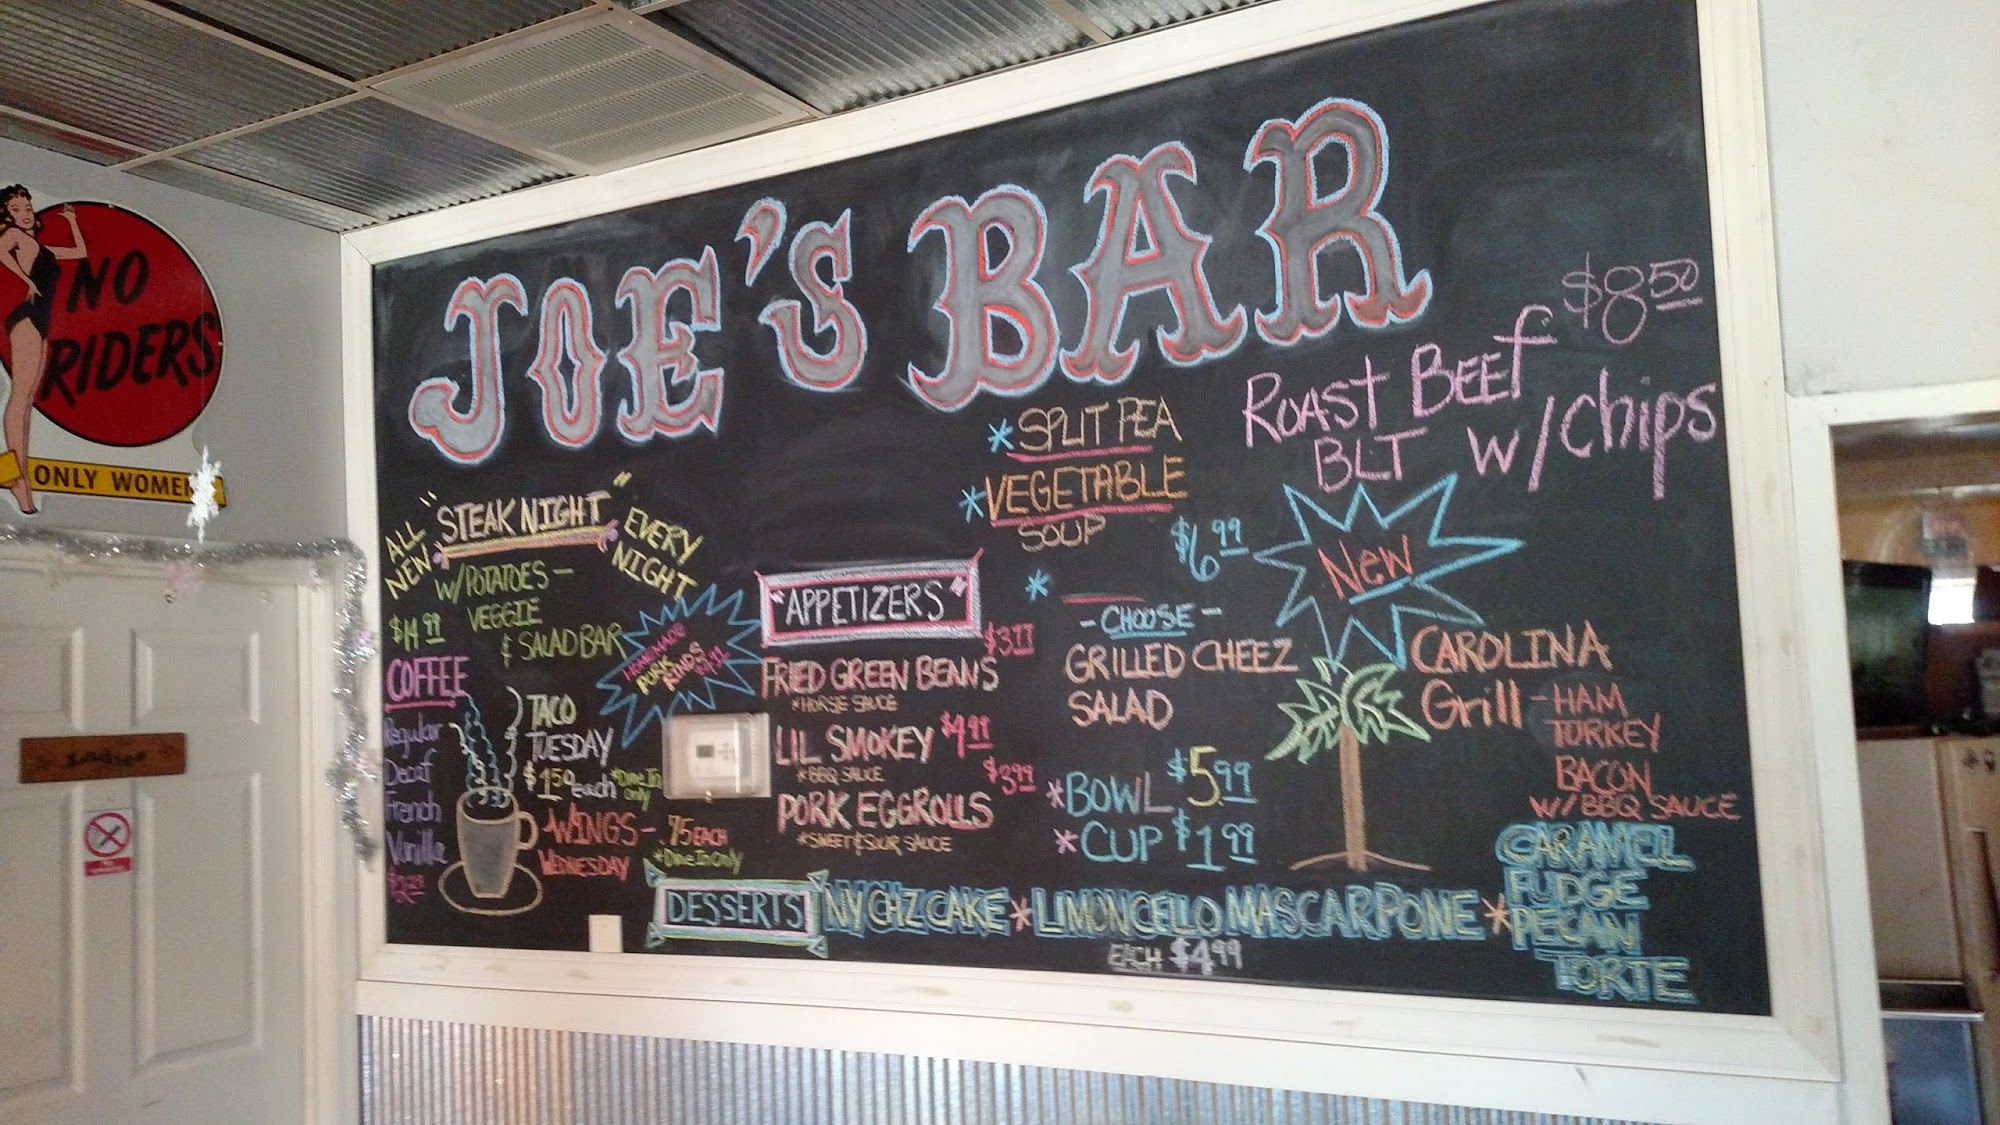 NO
RIDERS
ONLY WOMEN
Ladies
JOE'S BAR
$8.50
ROAST BEEF
BLT W/Chips
*SPLIT PEA
*VEGETABLE
SOUP
$6.99
*
-CHOOSE-
GRILLED CHEEZ
SALAD
*BOWL $5.99
*CUP $1.99
ALL NEW
"STEAK NIGHT"
EVERY NIGHT
W/POTATOES-
VEGGIE
& SALAD BAR
$14.99
HOMEMADE
PORK
RINDS
COFFEE
Regular
Decaf
French
Vanilla
TACO
TUESDAY
$1.50 each *Dine In only
WINGS- .75 EACH
WEDNESDAY *Dine In Only
"APPETIZERS"
FRIED GREEN BEANS
*HORSIE SAUCE
LIL SMOKEY $4.99
*BBQ SAUCE
$3.99
PORK EGGROLLS
*SWEET & SOUR SAUCE
New
CAROLINA
Grill - HAM
TURKEY
BACON
W/BBQ SAUCE
DESSERTS NY CHZ CAKE * LIMONCELLO MASCARPONE * CARAMEL
FUDGE
PECAN
TORTE
EACH $4.99